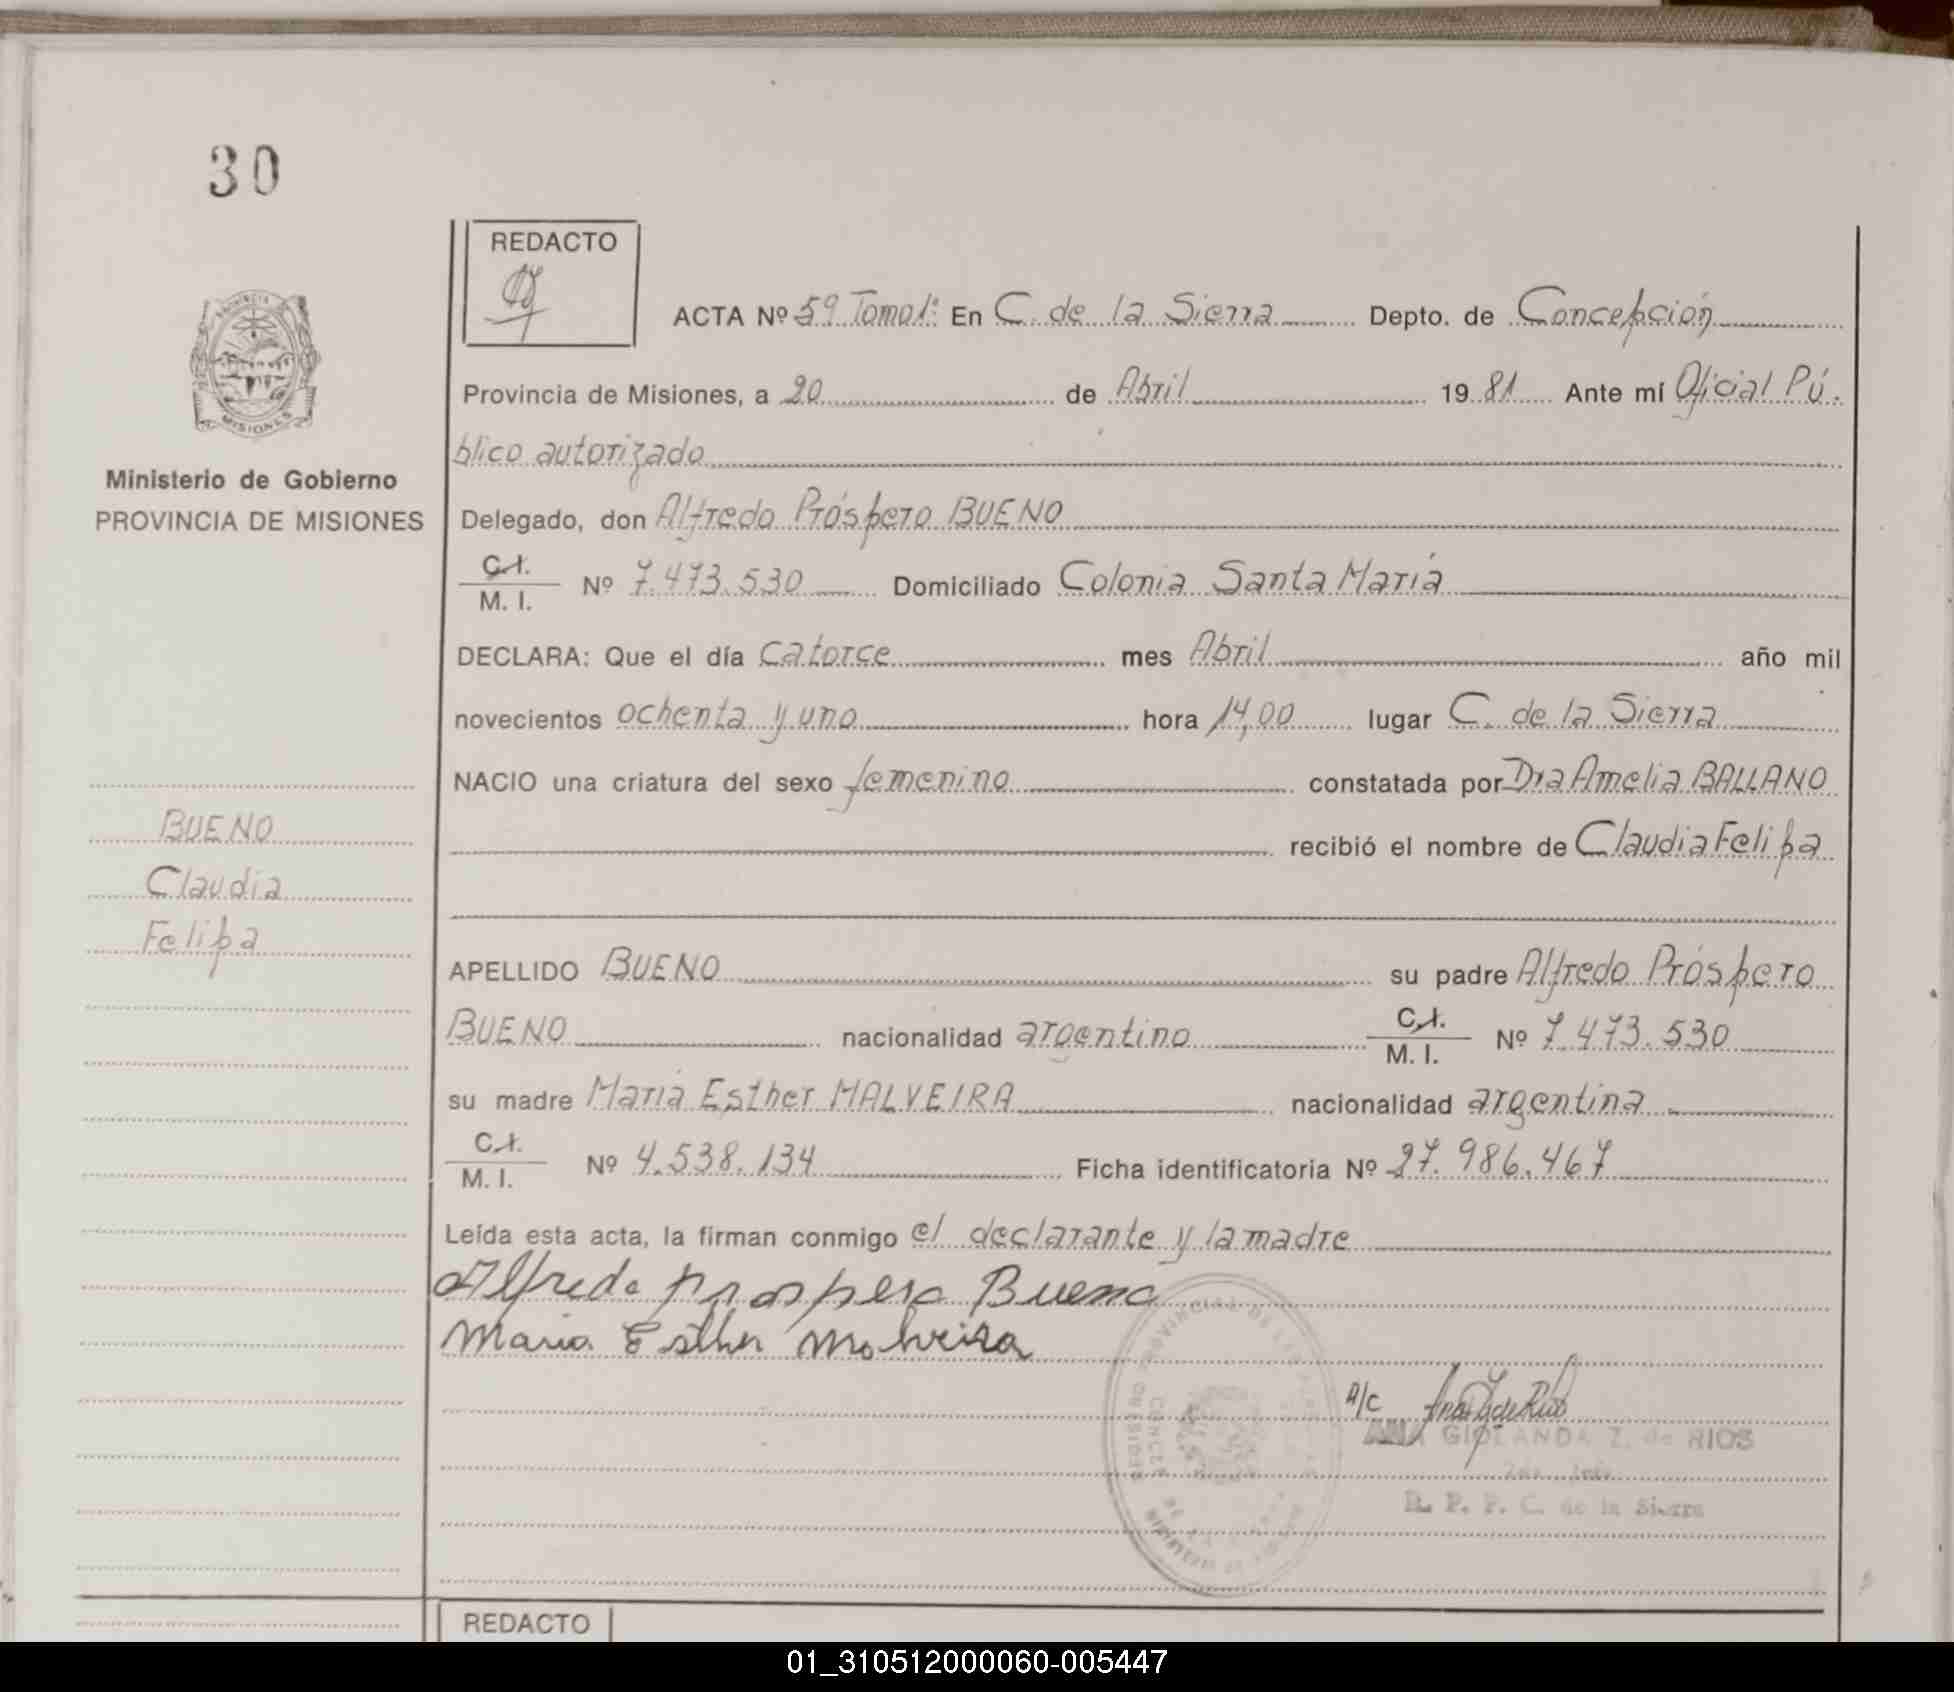 30
REDACTO
ACTA Nº 59 Tomo I: En C. de la Sierra Depto. de Concepción
Provincia de Misiones, a 20 de Abril 1981 Ante mí Oficial Pú.
blico autorizado
Ministerio de Gobierno
PROVINCIA DE MISIONES
Delegado, don Alfredo Próspero BUENO
C.I.
M. I. Nº 7.473.530 Domiciliado Colonia Santa María
DECLARA: Que el día catorce mes Abril año mil
novecientos ochenta y uno hora 14,00 lugar C. de la Sierra
NACIO una criatura del sexo femenino constatada por Dra Amelia BALLANO
recibió el nombre de Claudia Felipa
BUENO
Claudia
Felipa
APELLIDO BUENO su padre Alfredo Próspero
BUENO nacionalidad argentino C.I.
M. I. Nº 7.473.530
su madre María Esther MALVEIRA nacionalidad argentina
C.I.
M. I. Nº 4.538.134 Ficha identificatoria Nº 27.986.467
Leída esta acta, la firman conmigo el declarante y la madre
Alfredo prospero Bueno
Maria Esther Malveira
A/C
ANA GIOLANDA Z. de RIOS
R. P. P. C. de la Sierra
PROVINCIA
MISIONES
REDACTO
01_310512000060-005447